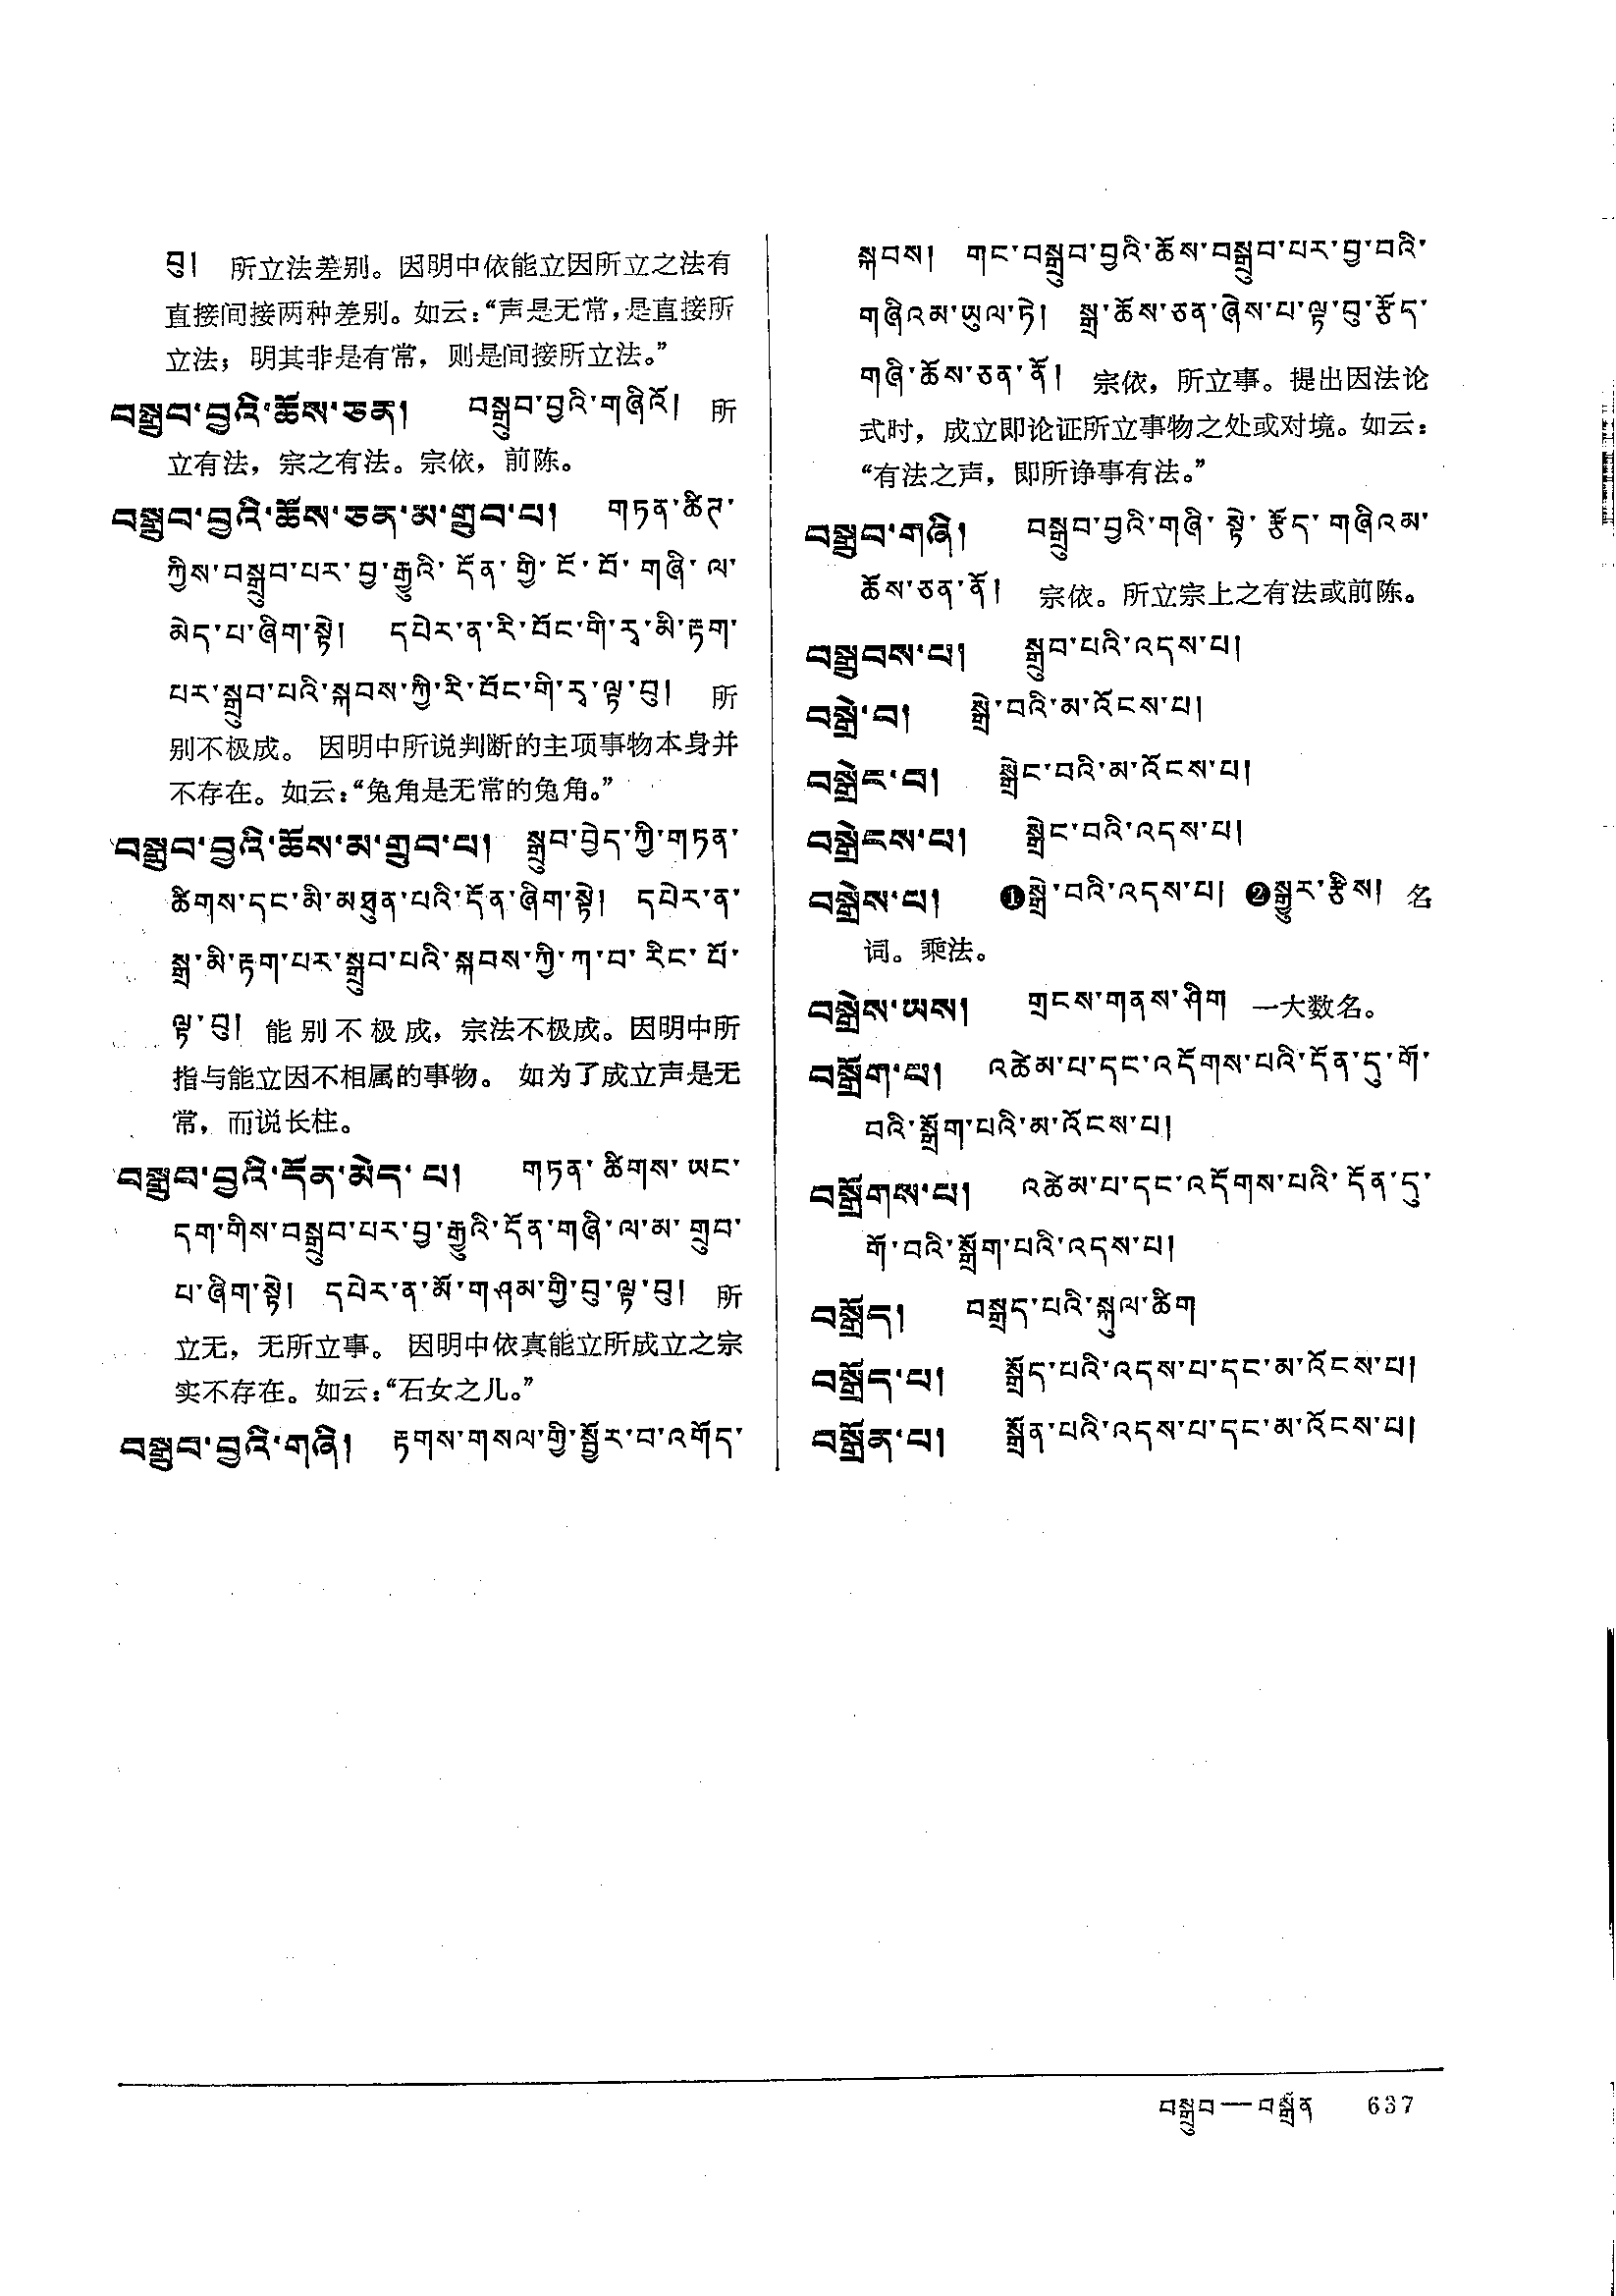 བུ། 所立法差别。因明中依能立因所立之法有
直接间接两种差别。如云：“声是无常，是直接所
立法；明其非是有常，则是间接所立法。”
བསྒྲུབ་བྱའི་ཆོས་ཅན། བསྒྲུབ་བྱའི་གཞིའོ། 所
立有法，宗之有法。宗依，前陈。
བསྒྲུབ་བྱའི་ཆོས་ཅན་མ་གྲུབ་པ། གཏན་ཚིག་
ཀྱིས་བསྒྲུབ་པར་བྱ་རྒྱུའི་དོན་གྱི་ངོ་བོ་གཞི་ལ་
མེད་པ་ཞིག་སྟེ། དཔེར་ན་རི་བོང་གི་རྭ་མི་རྟག་
པར་སྒྲུབ་པའི་སྐབས་ཀྱི་རི་བོང་གི་རྭ་ལྟ་བུ། 所
别不极成。 因明中所说判断的主项事物本身并
不存在。如云：“兔角是无常的兔角。”
བསྒྲུབ་བྱའི་ཆོས་མ་གྲུབ་པ། སྒྲུབ་བྱེད་ཀྱི་གཏན་
ཚིགས་དང་མི་མཐུན་པའི་དོན་ཞིག་སྟེ། དཔེར་ན་
སྒྲ་མི་རྟག་པར་སྒྲུབ་པའི་སྐབས་ཀྱི་ཀ་བ་རིང་པོ་
ལྟ་བུ། 能别不极成，宗法不极成。因明中所
指与能立因不相属的事物。 如为了成立声是无
常，而说长柱。
བསྒྲུབ་བྱའི་དོན་མེད་པ། གཏན་ཚིགས་ཡང་
དག་གིས་བསྒྲུབ་པར་བྱ་རྒྱུའི་དོན་གཞི་ལ་མ་གྲུབ་
པ་ཞིག་སྟེ། དཔེར་ན་མོ་གཤམ་གྱི་བུ་ལྟ་བུ། 所
立无，无所立事。 因明中依真能立所成立之宗
实不存在。如云：“石女之儿。”
བསྒྲུབ་བྱའི་གཞི། རྟགས་གསལ་གྱི་སྦྱོར་བ་འགོད་
སྐབས། གང་བསྒྲུབ་བྱའི་ཆོས་བསྒྲུབ་པར་བྱ་བའི་
གཞིའམ་ཡུལ་ཏེ། སྒྲ་ཆོས་ཅན་ཞེས་པ་ལྟ་བུ་རྩོད་
གཞི་ཆོས་ཅན་ནོ། 宗依，所立事。提出因法论
式时，成立即论证所立事物之处或对境。如云：
“有法之声，即所诤事有法。”
བསྒྲུབ་གཞི། བསྒྲུབ་བྱའི་གཞི་སྟེ་རྩོད་གཞིའམ་
ཆོས་ཅན་ནོ། 宗依。所立宗上之有法或前陈。
བསྒྲུབས་པ། སྒྲུབ་པའི་འདས་པ།
བསྒྲེ་བ། སྒྲེ་བའི་མ་འོངས་པ།
བསྒྲེང་བ། སྒྲེང་བའི་མ་འོངས་པ།
བསྒྲེངས་པ། སྒྲེང་བའི་འདས་པ།
བསྒྲེས་པ། ❶སྒྲེ་བའི་འདས་པ། ❷སྒྱུར་རྩིས། 名
词。乘法。
བསྒྲེས་ཡས། གྲངས་གནས་ཤིག 一大数名。
བསྒྲོག་པ། འཚེམ་པ་དང་འདོགས་པའི་དོན་དུ་གོ་
བའི་སྒྲོག་པའི་མ་འོངས་པ།
བསྒྲོགས་པ། འཚེམ་པ་དང་འདོགས་པའི་དོན་དུ་
གོ་བའི་སྒྲོག་པའི་འདས་པ།
བསྒྲོད། བསྒྲད་པའི་སྐུལ་ཚིག
བསྒྲོད་པ། སྒྲོད་པའི་འདས་པ་དང་མ་འོངས་པ།
བསྒྲོན་པ། སྒྲོན་པའི་འདས་པ་དང་མ་འོངས་པ།
བསྒྲུབ—བསྒྲོན 637